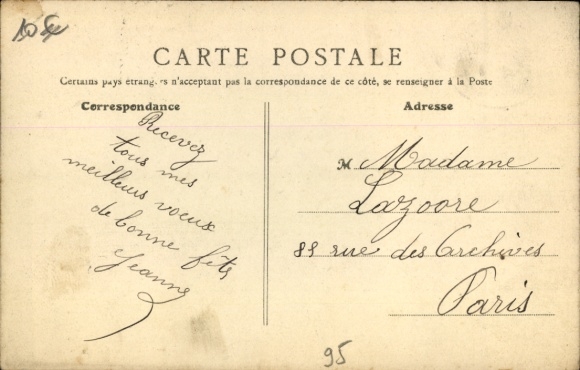 CARTE POSTALE
Certains pays étrangers n'acceptant pas la correspondance de ce côté, se renseigner à la Poste
Correspondance
Recevez
tous mes
meilleurs voeux
de bonne fête
Jeanne
Adresse
M Madame
Lazoore
85 rue des Archives
Paris
95